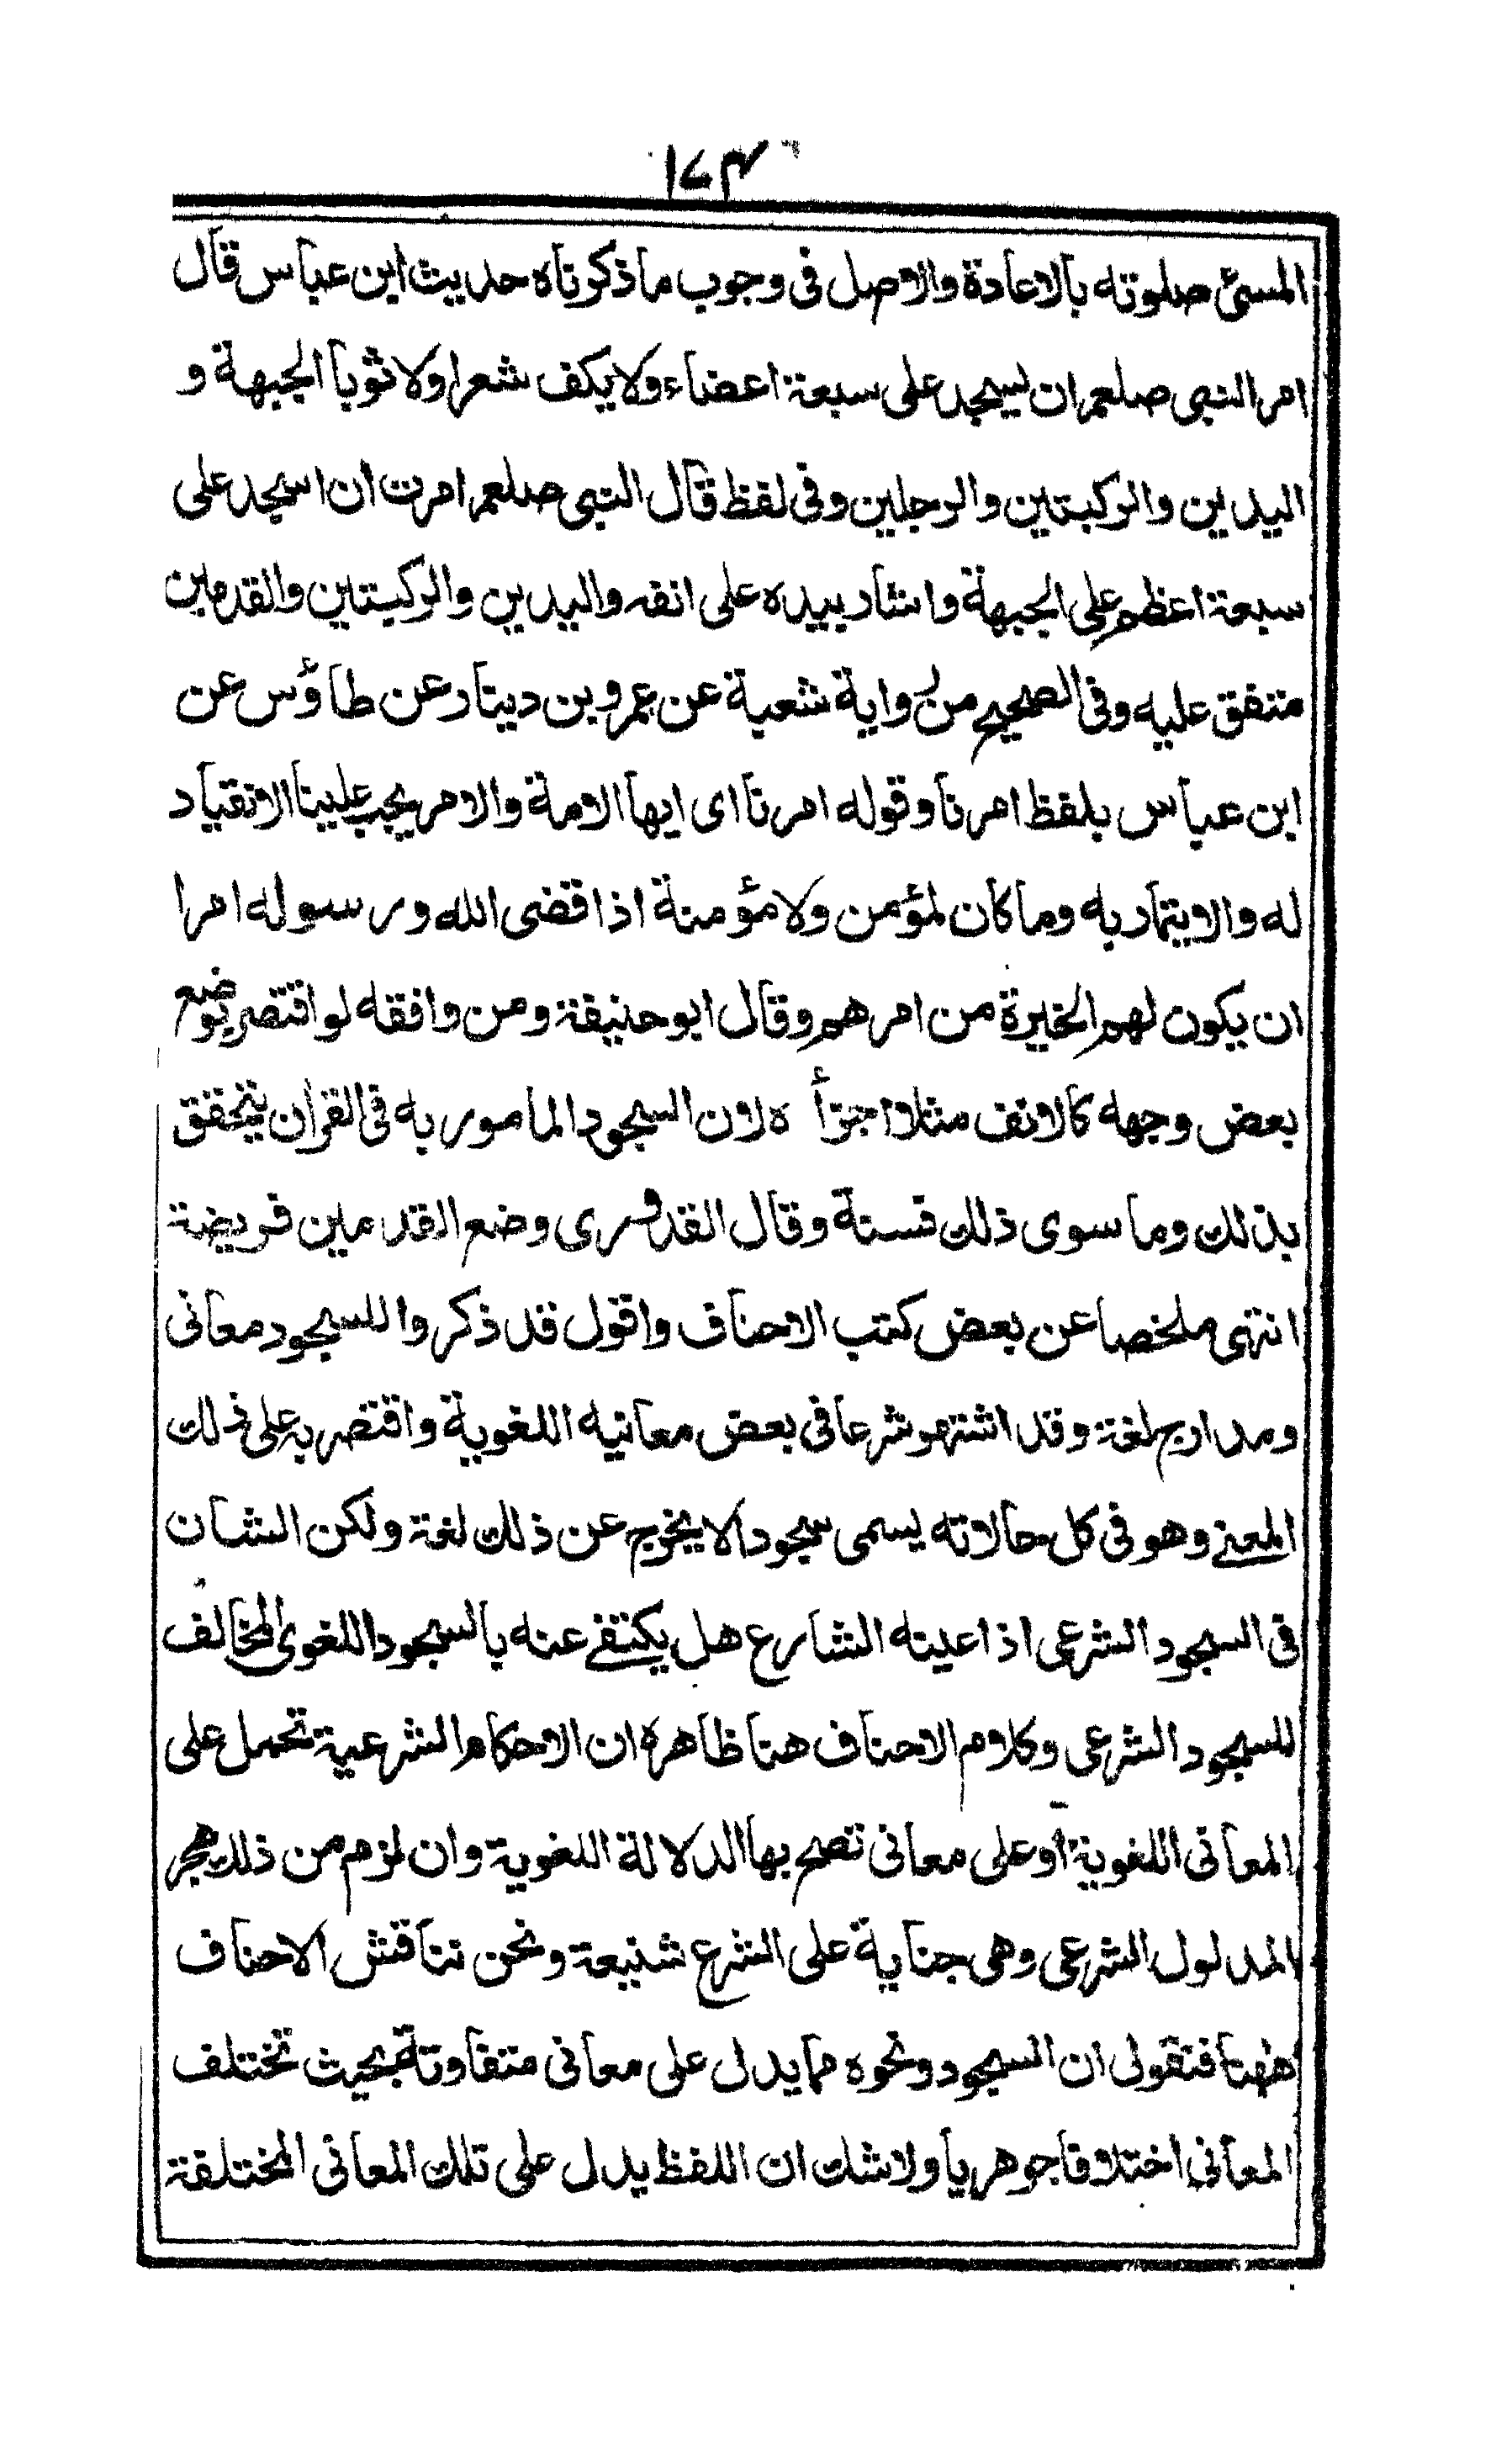 ١٧٣
المسئ صلوته بالاعادة والاصل فى وجوب ما ذكرناه حديث ابن عباس قال
امر النبى صلعم ان يسجد على سبعة اعضاء ولا يكف شعرا ولا ثوبا الجبهة و
اليدين والركبتين والرجلين وفى لفظ قال النبى صلعم امرت ان اسجد على
سبعة اعظم على الجبهة واشار بيده على انفه واليدين والركبتين والقدمين
متفق عليه وفى الصحيح من رواية شعبة عن عمرو بن دينار عن طاؤس عن
ابن عباس بلفظ امرنا وقوله امرنا اى ايها الامة والامر يجب علينا الانقياد
له والايتمار به وما كان لمؤمن ولا مؤمنة اذا قضى الله ورسوله امرا
ان يكون لهم الخيرة من امرهم وقال ابو حنيفة ومن وافقه لو اقتصر بوضع
بعض وجهه كالانف مثلا اجزأ ه لان السجود المامور به فى القرأن يتحقق
بذلك وما سوى ذلك فسنة وقال القدورى وضع القدمين فريضة
انتهى ملخصا عن بعض كتب الاحناف واقول قد ذكروا للسجود معانى
ومداريج لغة وقد اشتهر شرعا فى بعض معانيه اللغوية واقتصر به على ذلك
المعنے وهو فى كل حالاته يسمى سجودا لا يخرج عن ذلك لغة ولكن الشان
فى السجود الشرعى اذا عينه الشارع هل يكتفے عنه بالسجود اللغوى المخالف
للسجود الشرعى وكلام الاحناف هنا ظاهره ان الاحكام الشرعية تحمل على
المعانى اللغوية أو على معانى تصح بها الدلالة اللغوية وان لزم من ذلك هجر
المدلول الشرعى وهى جناية على الشرع شنيعة ونحن نناقش الاحناف
ههنا فنقول ان السجود ونحوه مما يدل على معانى متفاوتة بحيث تختلف
المعانى اختلافا جوهريا ولا شك ان اللفظ يدل على تلك المعانى المختلفة